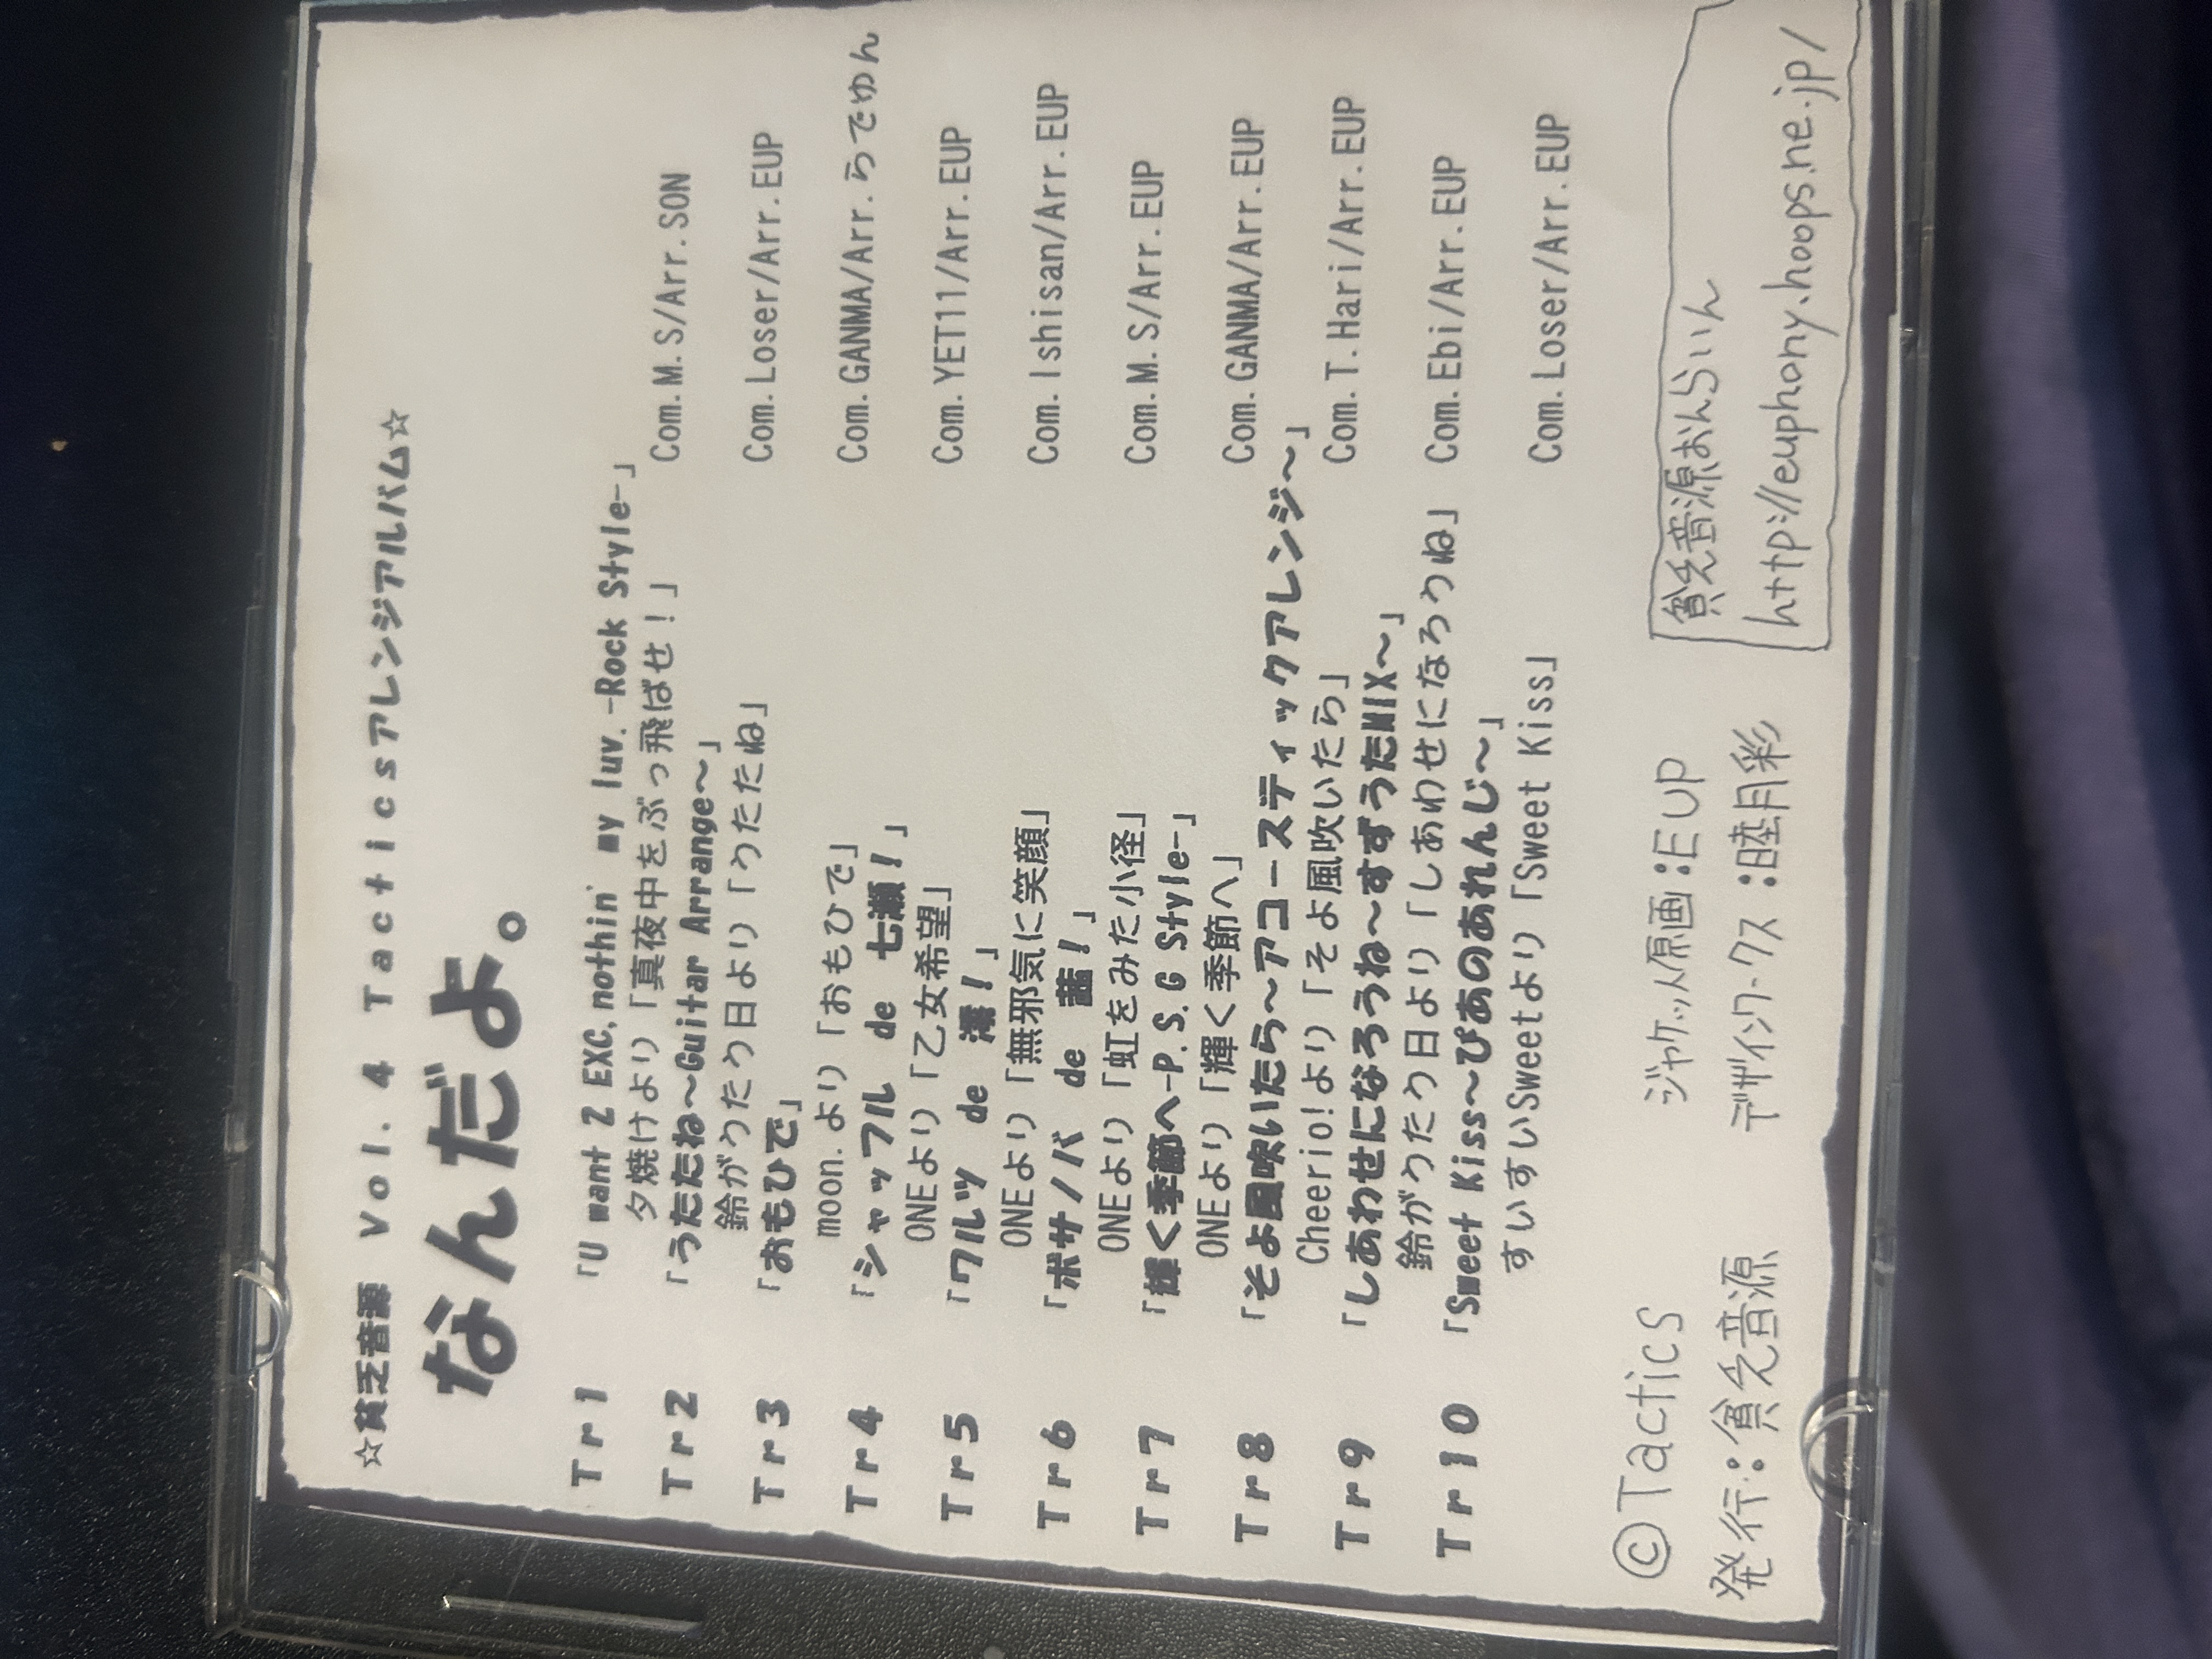 ☆貧乏音源 Vol.4 Tacticsアレンジアルバム☆
なんだよ。
Tr1 「U want 2 EXC, nothin' my luv. -Rock Style-」
夕焼けより「真夜中をぶっ飛ばせ！」 Com.M.S/Arr.SON
Tr2 「うたたね～Guitar Arrange～」
鈴がうたう日より「うたたね」 Com.Loser/Arr.EUP
Tr3 「おもひで」
moon.より「おもひで」 Com.GANMA/Arr.らでゆん
Tr4 「シャッフル de 七瀬！」
ONEより「乙女希望」 Com.YET11/Arr.EUP
Tr5 「ワルツ de 澪！」
ONEより「無邪気に笑顔」 Com.Ishisan/Arr.EUP
Tr6 「ボサノバ de 茜！」
ONEより「虹をみた小径」 Com.M.S/Arr.EUP
Tr7 「輝く季節へ-P.S.G Style-」
ONEより「輝く季節へ」 Com.GANMA/Arr.EUP
Tr8 「そよ風吹いたら～アコースティックアレンジ～」
Cheerio!より「そよ風吹いたら」 Com.T.Hari/Arr.EUP
Tr9 「しあわせになろうね～すずうたMIX～」
鈴がうたう日より「しあわせになろうね」 Com.Ebi/Arr.EUP
Tr10 「Sweet Kiss～ぴあのあれんじ～」
すいすいSweetより「Sweet Kiss」 Com.Loser/Arr.EUP
©Tactics ジャケット原画:EUP
発行:貧乏音源 デザインワークス:睦月彩
貧乏音源おんらいん
http://euphony.hoops.ne.jp/